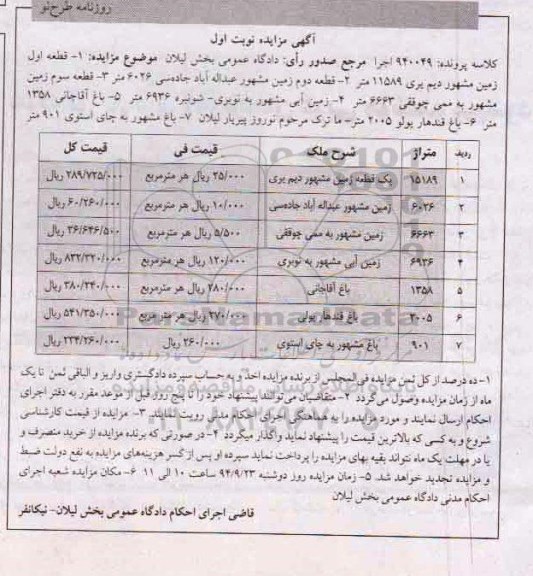 روزنامه طرح‌نو
آگهی مزایده نوبت اول
کلاسه پرونده: ۹۴۰۰۴۹ اجرا مرجع صدور رأی: دادگاه عمومی بخش لیلان موضوع مزایده: ۱- قطعه اول
زمین مشهور دیم پری ۱۱۵۸۹ متر ۲- قطعه دوم زمین مشهور عبداله آباد جاده‌سی ۶۰۲۶ متر ۳- قطعه سوم زمین
مشهور به ممی چوققی ۶۶۶۳ متر ۴- زمین آبی مشهور به نوبری- شونیره ۶۹۳۶ متر ۵- باغ آقاجانی ۱۳۵۸
متر ۶- باغ قندهار یولو ۲۰۰۵ متر- ما ترک مرحوم نوروز پیریار لیلان ۷- باغ مشهور به چای استوی ۹۰۱ متر
ردیف متراژ شرح ملک قیمت فی قیمت کل
۱ ۱۵۱۸۹ یک قطعه زمین مشهور دیم پری ۲۵/۰۰۰ ریال هر مترمربع ۲۸۹/۷۲۵/۰۰۰ ریال
۲ ۶۰۲۶ زمین مشهور عبداله آباد جاده‌سی ۱۰/۰۰۰ ریال هر مترمربع ۶۰/۲۶۰/۰۰۰ ریال
۳ ۶۶۶۳ زمین مشهور به ممی چوققی ۵/۵۰۰ ریال هر مترمربع ۳۶/۶۴۶/۵۰۰ ریال
۴ ۶۹۳۶ زمین آبی مشهور به نوبری ۱۲۰/۰۰۰ ریال هر مترمربع ۸۳۲/۳۲۰/۰۰۰ ریال
۵ ۱۳۵۸ باغ آقاجانی ۲۸۰/۰۰۰ ریال هر مترمربع ۳۸۰/۲۴۰/۰۰۰ ریال
۶ ۲۰۰۵ باغ قندهار یولی ۲۷۰/۰۰۰ ریال هر مترمربع ۵۴۱/۳۵۰/۰۰۰ ریال
۷ ۹۰۱ باغ مشهور به چای استوی ۲۶۰/۰۰۰ ریال ۲۳۴/۲۶۰/۰۰۰ ریال
۱-ده درصد از کل ثمن مزایده فی‌المجلس از برنده مزایده اخذ و به حساب سپرده دادگستری واریز و الباقی ثمن تا یک
ماه از زمان مزایده وصول می‌گردد ۲- متقاضیان می‌توانند پیشنهاد خود را تا پنج روز قبل از موعد مقرر به دفتر اجرای
احکام ارسال نمایند و مورد مزایده را به هماهنگی اجرای احکام مدنی رویت نمایند. ۳- مزایده از قیمت کارشناسی
شروع و به کسی که بالاترین قیمت را پیشنهاد نماید واگذار میگردد ۴- در صورتی که برنده مزایده از خرید منصرف و
یا در مهلت یک ماه نتواند بقیه بهای مزایده را پرداخت نماید سپرده او پس از کسر هزینه‌های مزایده به نفع دولت ضبط
و مزایده تجدید خواهد شد. ۵- زمان مزایده روز دوشنبه ۹۴/۹/۲۳ ساعت ۱۰ الی ۱۱ ۶- مکان مزایده شعبه اجرای
احکام مدنی دادگاه عمومی بخش لیلان
قاضی اجرای احکام دادگاه عمومی بخش لیلان- نیکانفر